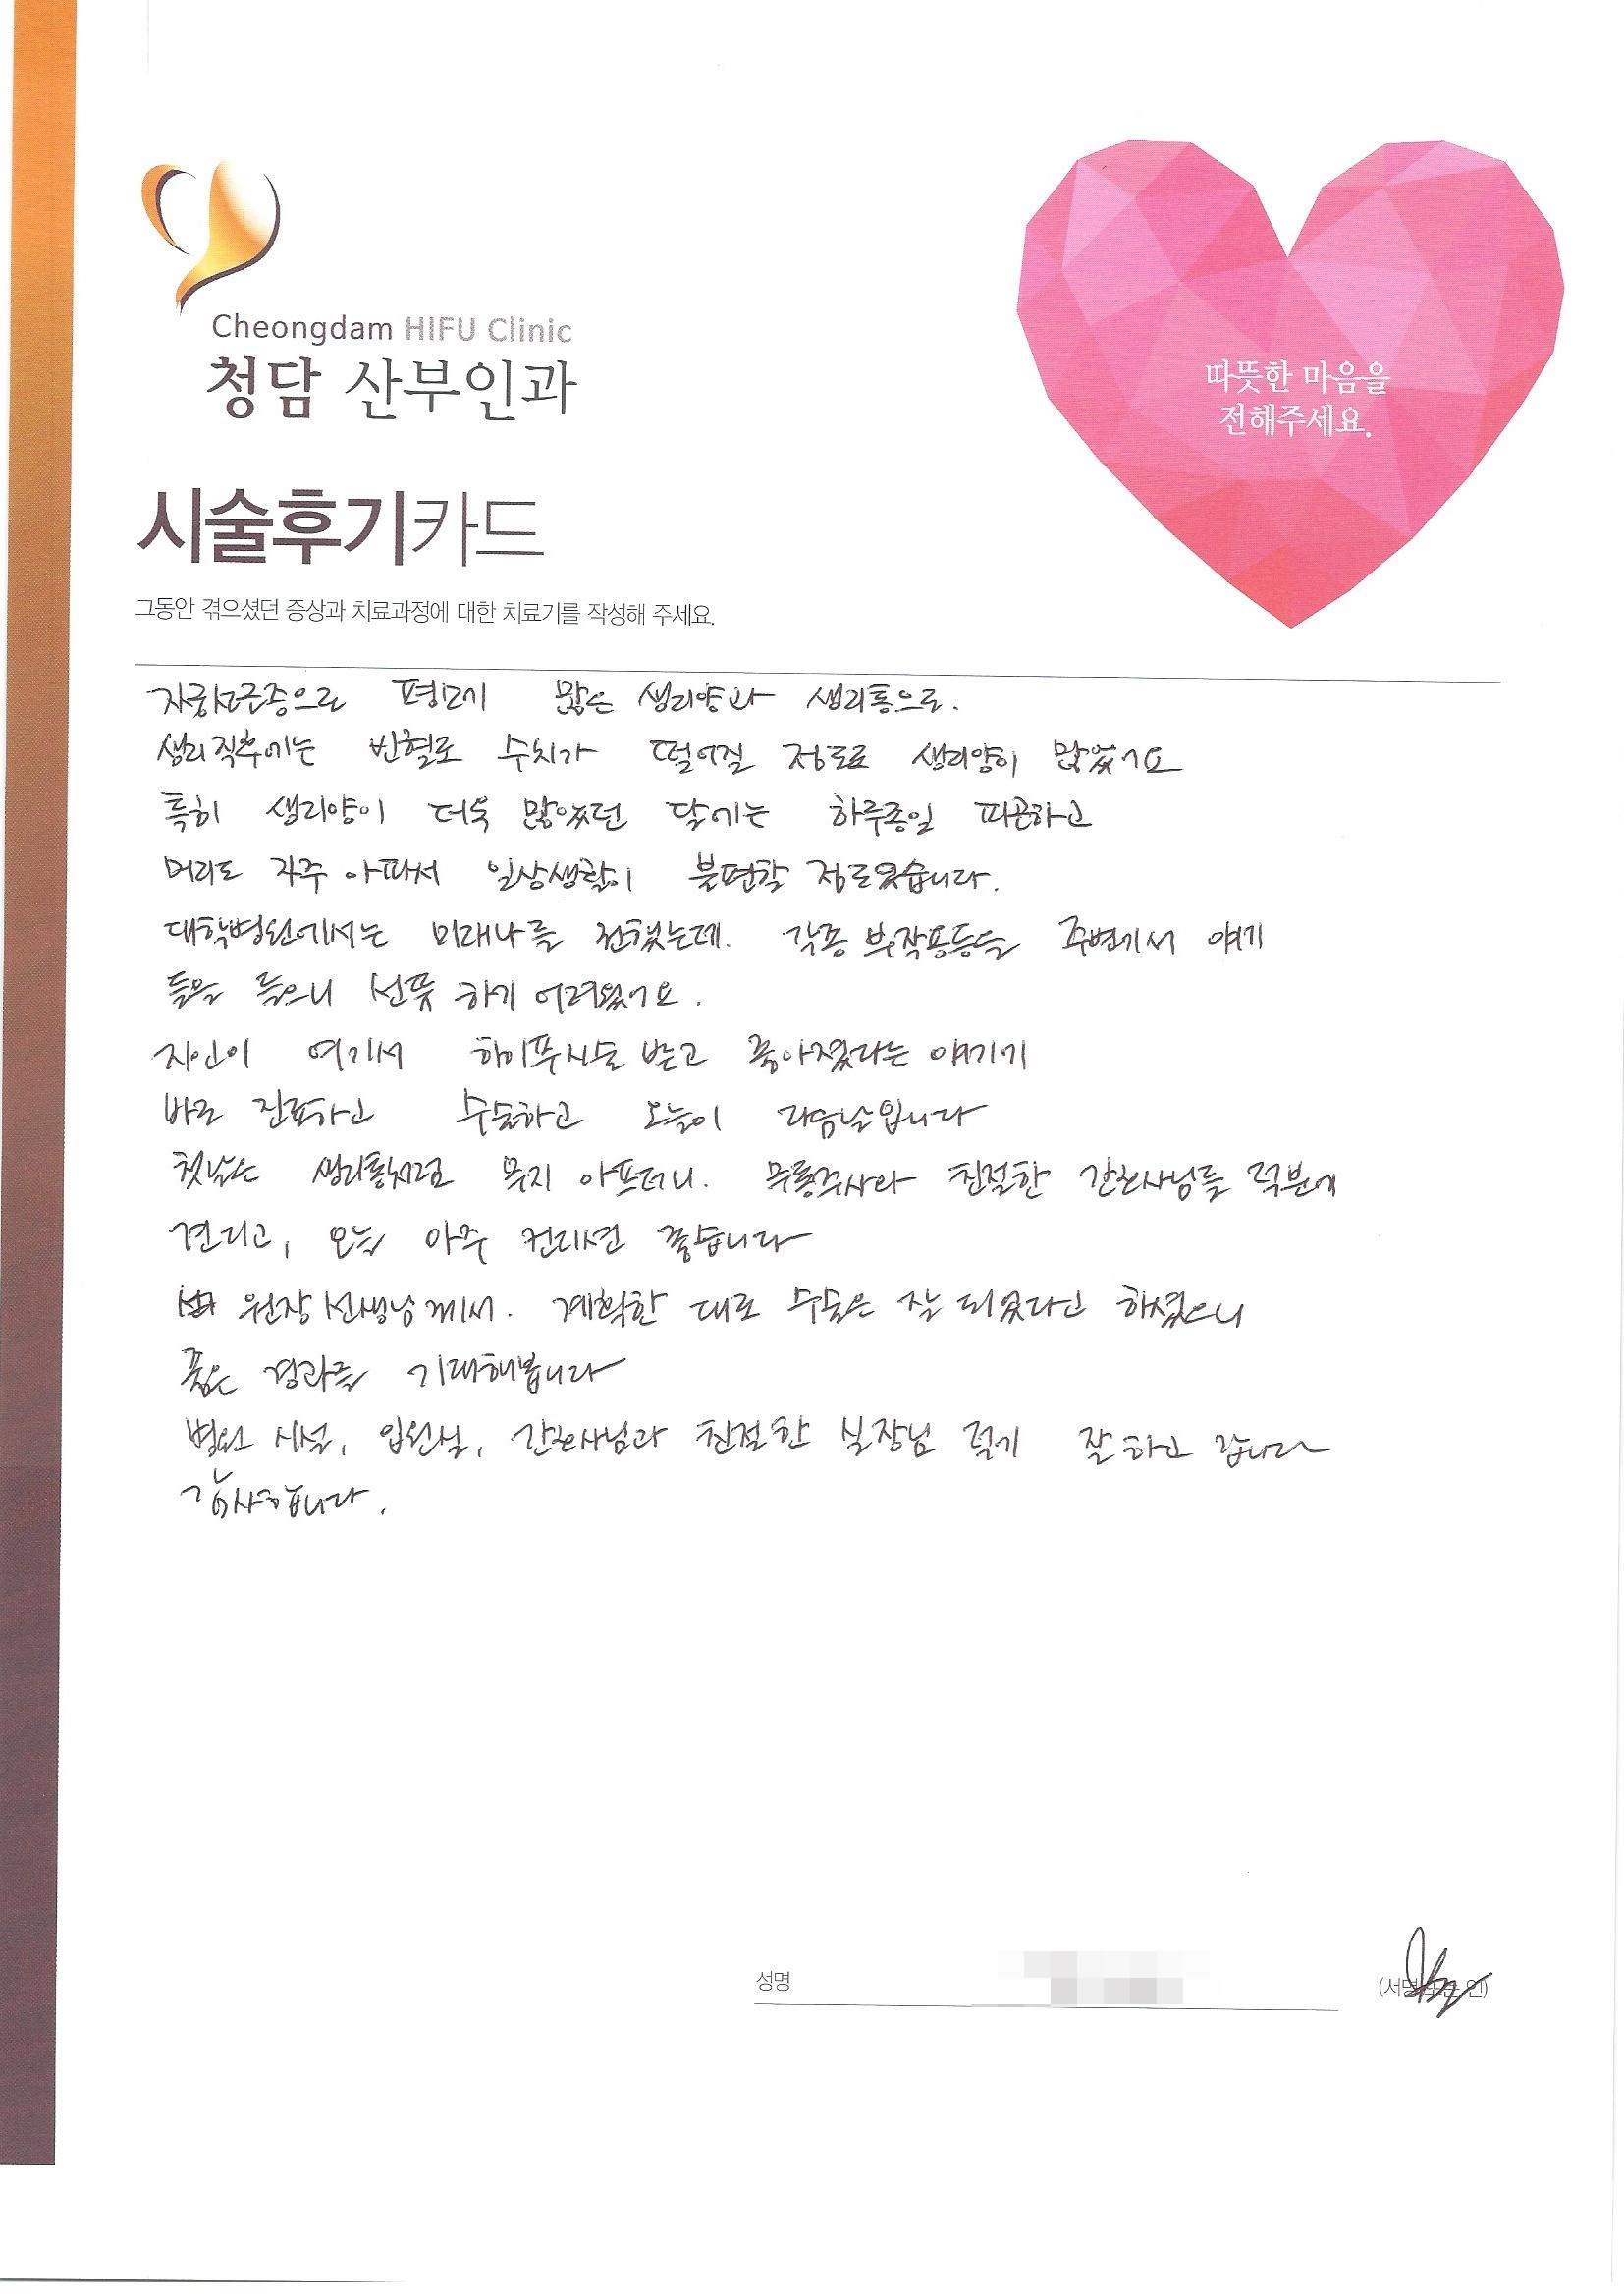 Cheongdam HIFU Clinic
청담 산부인과
따뜻한 마음을
전해주세요.
시술후기카드
그동안 겪으셨던 증상과 치료과정에 대한 치료기를 작성해 주세요.
자궁근종으로 평소에 많은 생리양과 생리통으로.
생리직후에는 빈혈로 수치가 떨어질 정도로 생리양이 많았어요
특히 생리양이 더욱 많았던 달에는 하루종일 피곤하고
머리도 자주 아파서 일상생활이 불편할 정도였습니다.
대학병원에서는 미레나를 권했는데. 각종 부작용등을 주변에서 얘기
들을 들으니 선뜻 하기 어려웠어요.
지인이 여기서 하이푸시술 받고 좋아졌다는 얘기에
바로 진료하고 수술하고 오늘이 다음날입니다
첫날은 생리통처럼 무지 아프더니. 무통주사와 친절한 간호사님들 덕분에
견디고, 오늘 아주 컨디션 좋습니다
원장선생님께서. 계획한 대로 수술은 잘 되었다고 하셨으니
좋은 경과를 기대해봅니다
병원 시설, 입원실, 간호사님과 친절한 실장님 덕에 잘 하고 갑니다
감사합니다.
성명
(서명 또는 인)